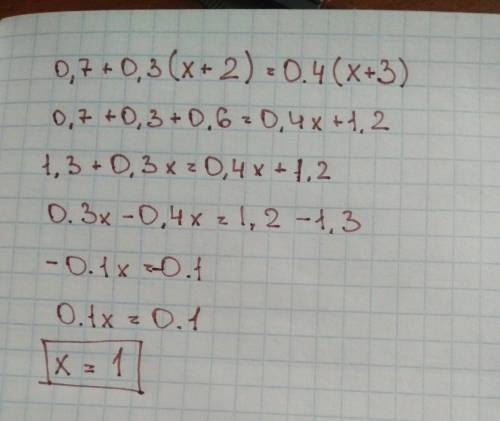 0,7 + 0,3(x + 2) = 0.4(x+3)
0,7 + 0,3 + 0,6 = 0,4x + 1,2
1,3 + 0,3x = 0,4x + 1.2
0.3x - 0,4x = 1,2 - 1,3
-0.1x = -0.1
0.1x = 0.1
x = 1